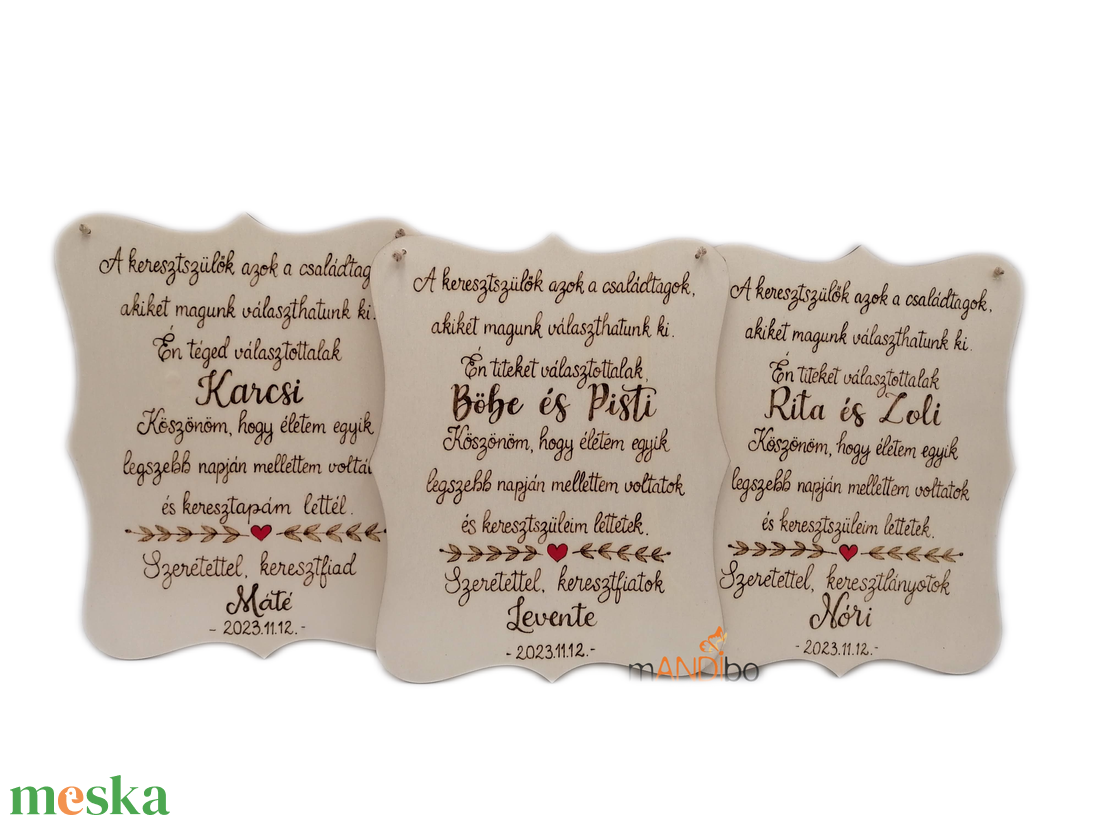 A keresztszülők azok a családtag
akiket magunk választhatunk ki.
Én téged választottalak
Karcsi
Köszönöm, hogy életem egyik
legszebb napján mellettem volta
és keresztapám lettél.
Szeretettel, keresztfiad
Máté
- 2023.11.12. -
A keresztszülők azok a családtagok,
akiket magunk választhatunk ki.
Én titeket választottalak,
Böbe és Pisti
Köszönöm, hogy életem egyik
legszebb napján mellettem voltatok
és keresztszüleim lettetek.
Szeretettel, keresztfiatok
Levente
- 2023.11.12. -
A keresztszülők azok a családtagok,
akiket magunk választhatunk ki.
Én titeket választottalak
Rita és Zoli
Köszönöm, hogy életem egyik
legszebb napján mellettem voltatok
és keresztszüleim lettetek.
Szeretettel, keresztlányotok
Nóri
- 2023.11.12. -
mANDibo
meska